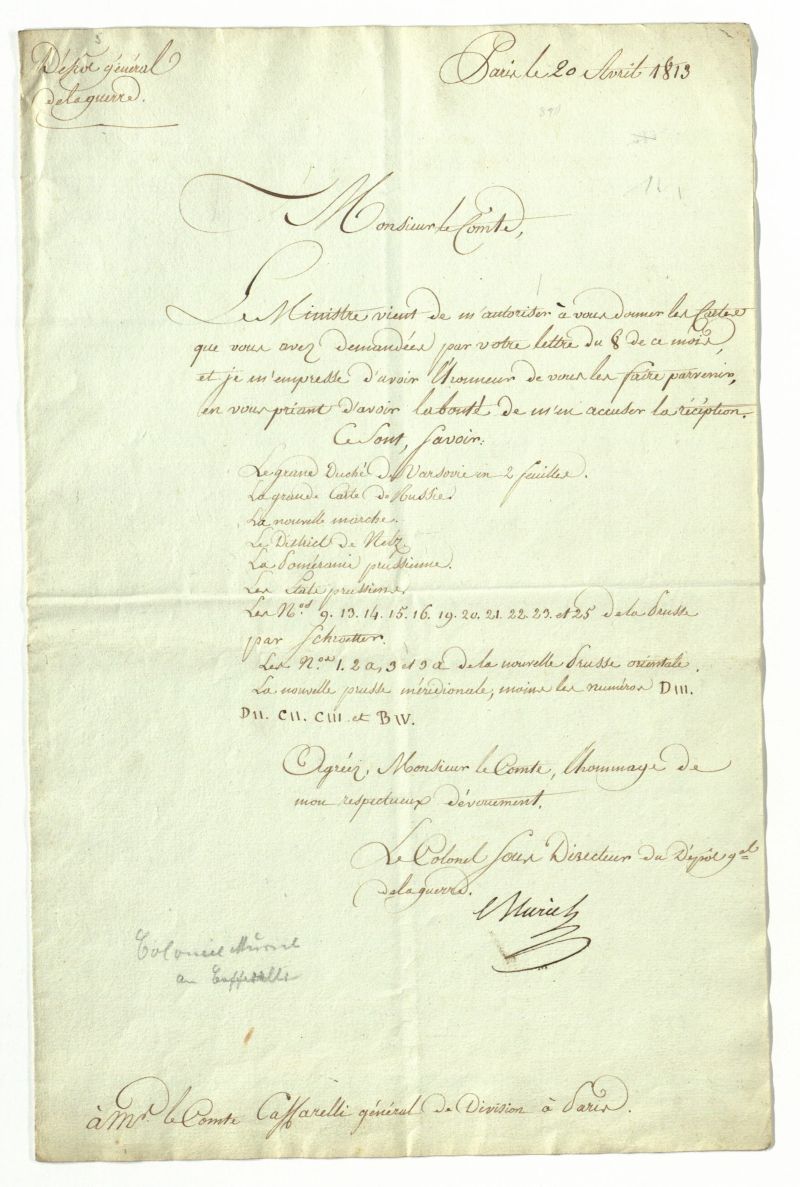 Dépôt général
de la guerre.
Paris le 20 Avril 1813
Monsieur le Comte,
Le Ministre vient de m'autoriser à vous donner les Cartes
que vous avez demandées par votre lettre du 8 de ce mois,
et je m'empresse d'avoir l'honneur de vous les faire parvenir,
en vous priant d'avoir la bonté de m'en accuser la réception.
Ce sont, Savoir:
Le grand Duché de Varsovie en 2 feuilles.
La grande Carte de Russie
La nouvelle marche.
Le District de Netz.
La Poméranie prussienne.
Les Etats prussiens
Les Nos 9. 13. 14. 15. 16. 19. 20. 21. 22. 23. et 25 de la Prusse
par Schroetter.
Les Nos 1. 2 a, 3 et 3 a de la nouvelle Prusse orientale.
La nouvelle prusse méridionale, moins les numéros DIII.
DII. CII. CIII et BIV.
Agréez, Monsieur le Comte, l'hommage de
mon respectueux dévouement.
Le Colonel Sous Directeur du Dépôt gal
de la guerre.
Muriel
Colonel Muriel
an Caffarelli
à Mr. le Comte Caffarelli général de Division à Paris.